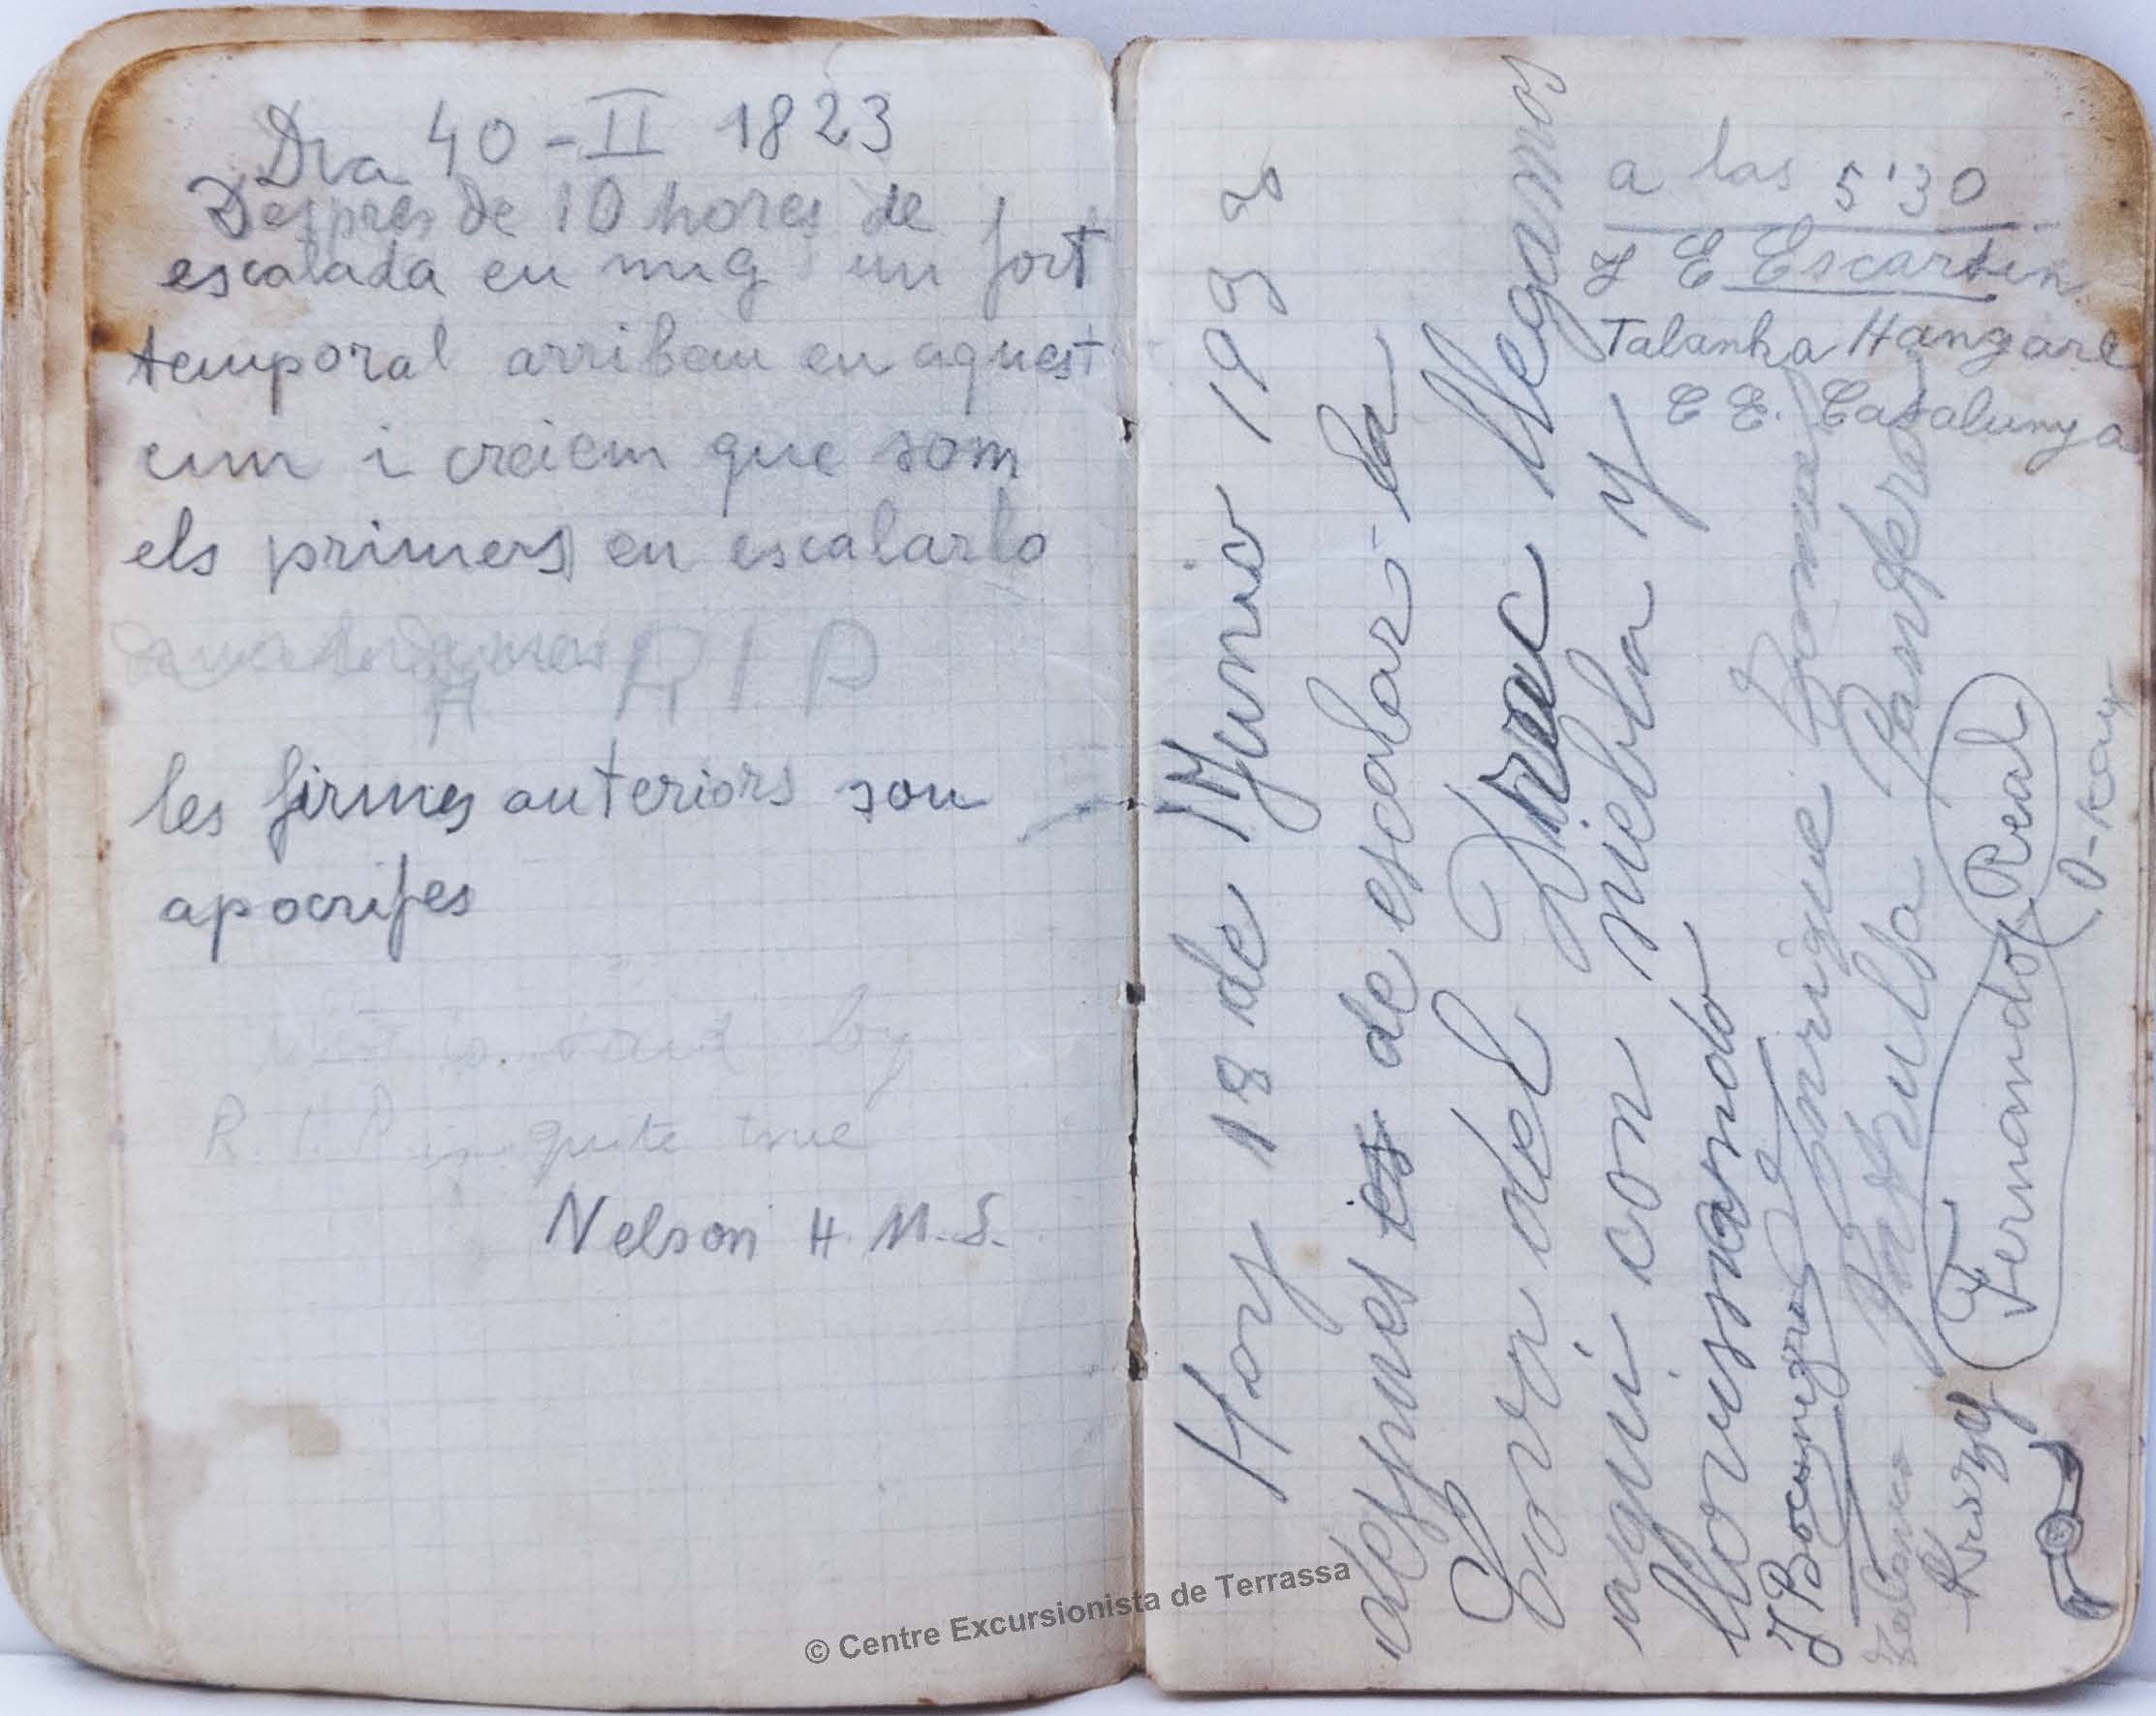 Dia 40-II 1823
Despres de 10 hores de
escalada en mig un fort
temporal arribem en aquest
cim i creiem que som
els primers en escalarlo
RIP
les firmes anteriors son
apocrifes
by
R.I.P is quite true
Nelson H.M.S.
Hoy 18 de Junio 193
despues es de escalar la
Cova del Drac llegamos
aqui con niebla y
llovisnando
a las 5'30
E Escartin
Talanka Hangare
C E. Catalunya
J Bocunegra
Enrique
Fernando Real
O-Kay
© Centre Excursionista de Terrassa